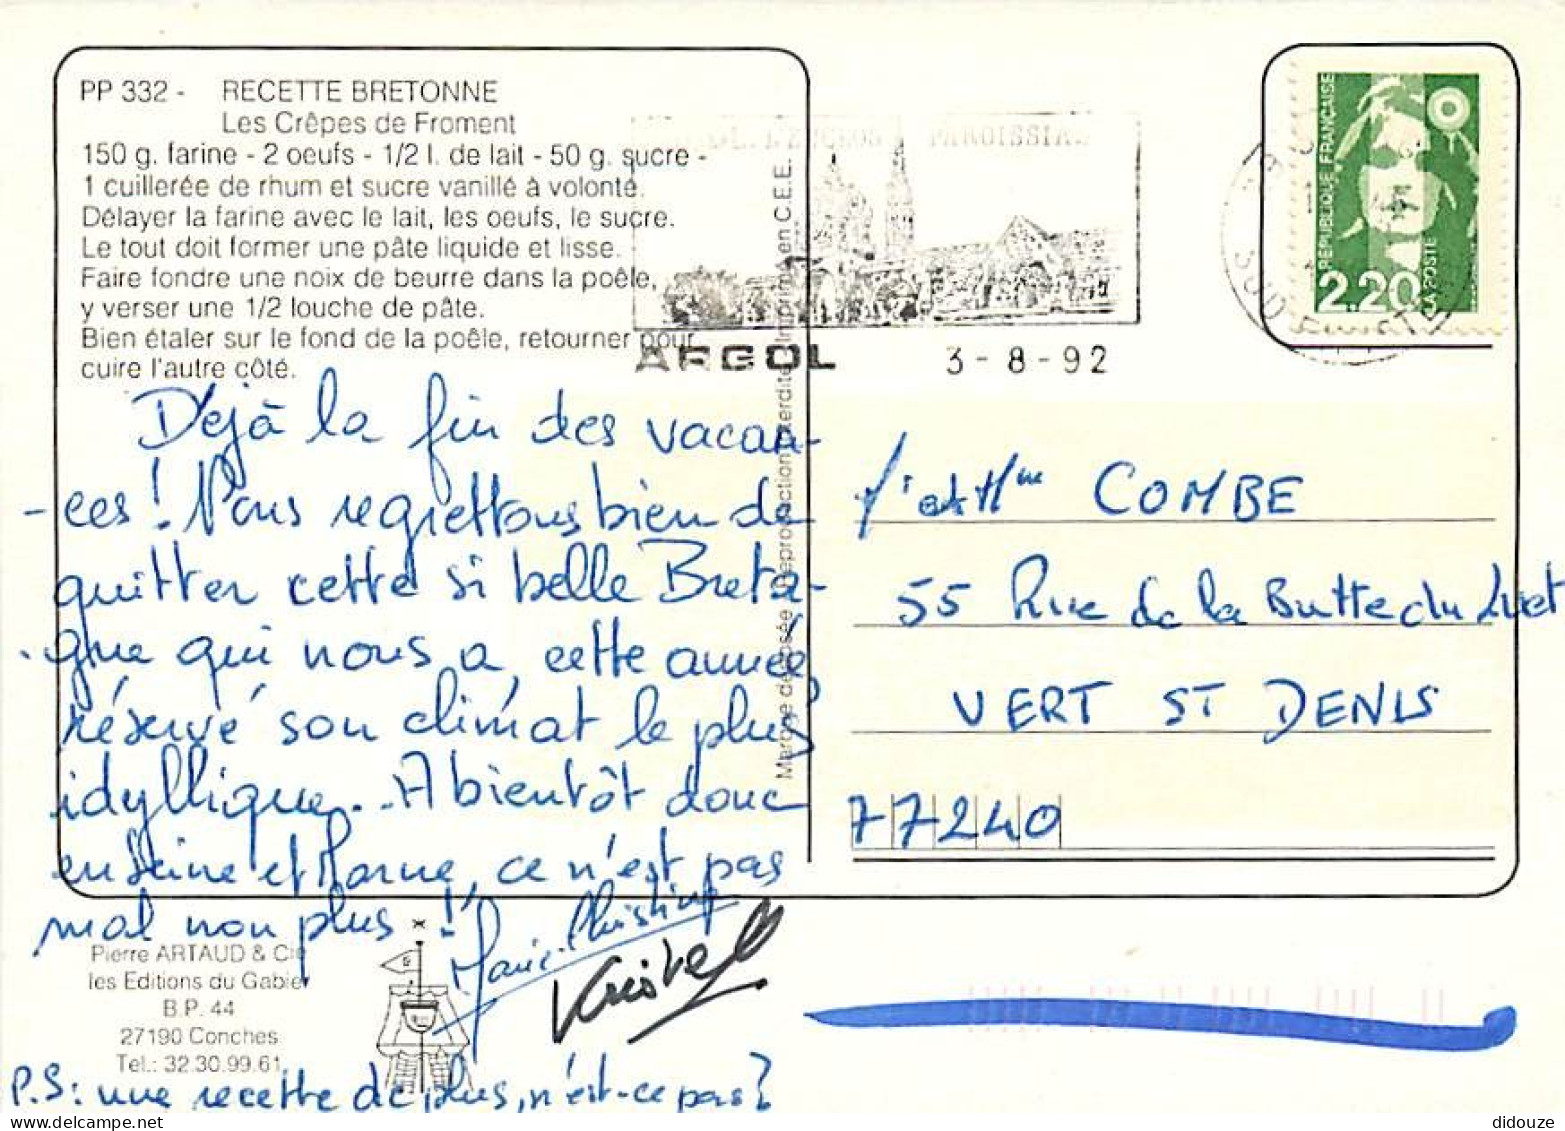 PP 332 - RECETTE BRETONNE
Les Crêpes de Froment
150 g. farine - 2 oeufs - 1/2 l. de lait - 50 g. sucre -
1 cuillerée de rhum et sucre vanillé à volonté.
Délayer la farine avec le lait, les oeufs, le sucre.
Le tout doit former une pâte liquide et lisse.
Faire fondre une noix de beurre dans la poêle,
y verser une 1/2 louche de pâte.
Bien étaler sur le fond de la poêle, retourner pour
cuire l'autre côté.
Déjà la fin des vacan-
-ces ! Nous regrettons bien de
quitter cette si belle Breta-
-gne qui nous a, cette année,
réservé son climat le plus
idyllique... A bientôt donc
en Seine et Marne, ce n'est pas
mal non plus !
Marie-Christine
Kristell
P.S: une recette de plus, n'est-ce pas ?
Pierre ARTAUD & Cie
les Editions du Gabier
B.P. 44
27190 Conches
Tel.: 32.30.99.61
Marque déposée Reproduction interdite Imprimé en C.E.E.
PAROISSIAL
ARGOL
3-8-92
SUD FINISTERE
REPUBLIQUE FRANÇAISE
2,20
LA POSTE
et Mme COMBE
55 Rue de la Butte du Luet
VERT ST DENIS
77240
didouze